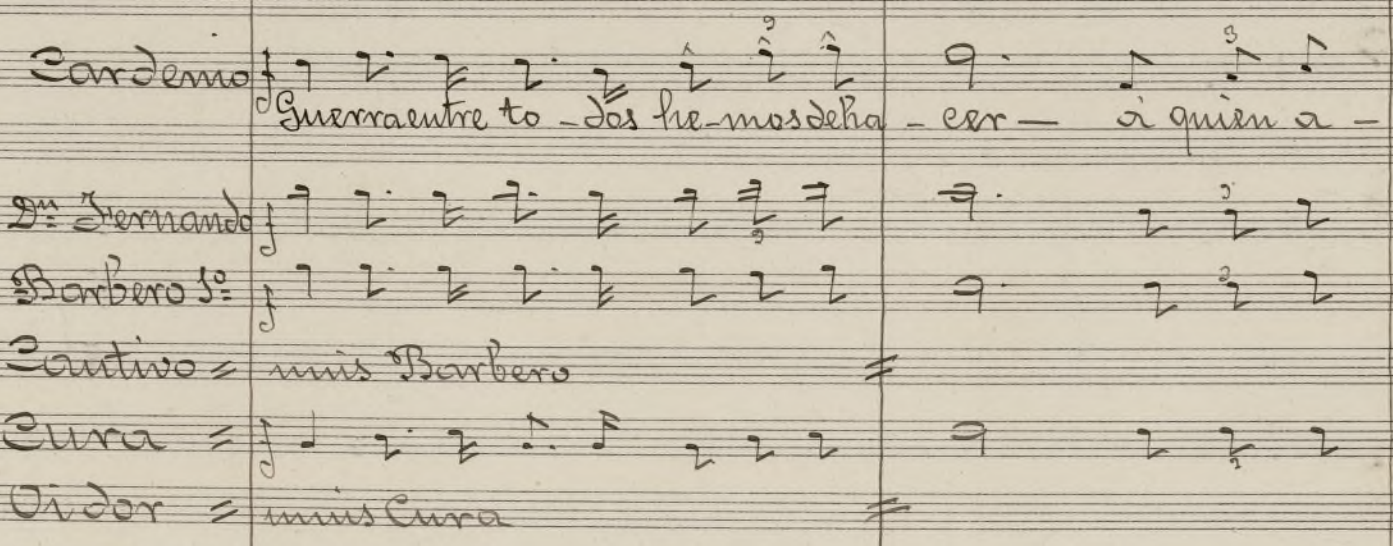 Cardenio
Guerra entre to - dos he - mos de ha - cer — á quien a -
Dn Fernando
Barbero 1º
Cautivo = unis Barbero
Cura =
Oidor = unis Cura